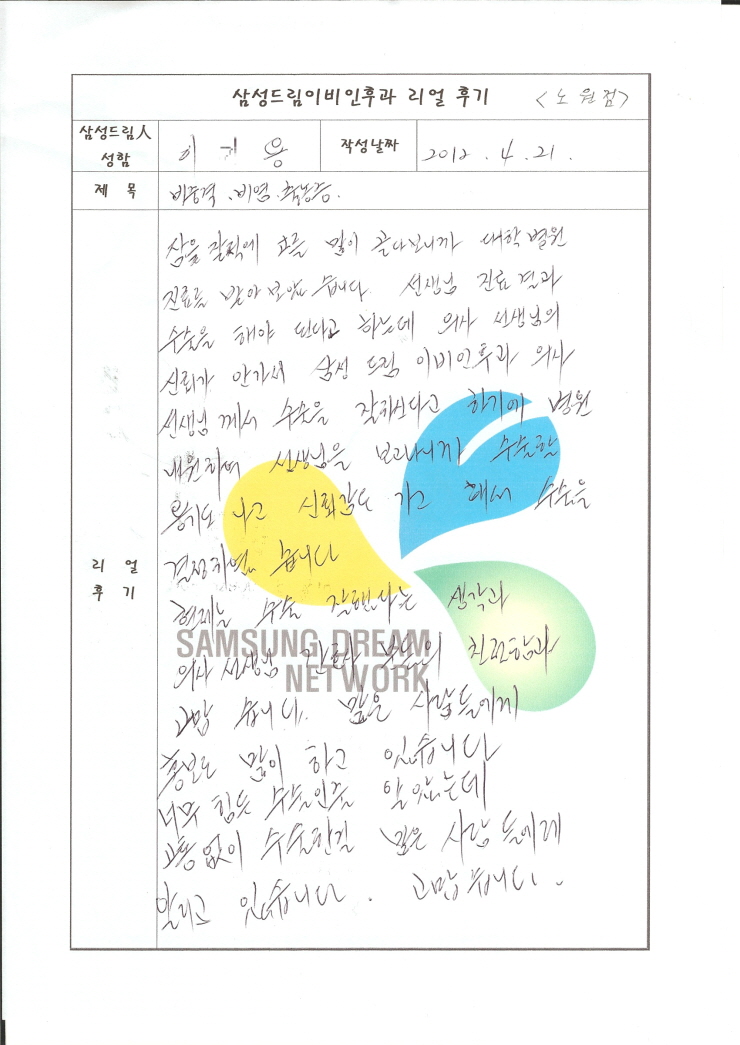 삼성드림이비인후과 리얼 후기 <노원점>
삼성드림人 성함 이 용 작성날짜 2012. 4. 21.
제 목 비중격. 비염. 축농증.
잠을 잘적에 코를 많이 골다보니까 대학병원
진료를 받아 보았습니다. 선생님 진료결과
수술을 해야 된다고 하는데 의사 선생님의
신뢰가 안가서 삼성 드림 이비인후과 의사
선생님께서 수술을 잘하신다고 하기에 병원
내원하여 선생님을 보고나니까 수술할
용기도 나고 신뢰감도 가고 해서 수술을
결정하였습니다
리 얼 후 기
현제는 수술 잘했다는 생각과
SAMSUNG DREAM NETWORK
의사 선생님 간호사 분들의 친절함과
고맙습니다. 많은 사람들에게
홍보도 많이 하고 있습니다
너무 힘든 수술인줄 알았는데
고통없이 수술한걸 많은 사람들에게
알리고 있습니다. 고맙습니다.